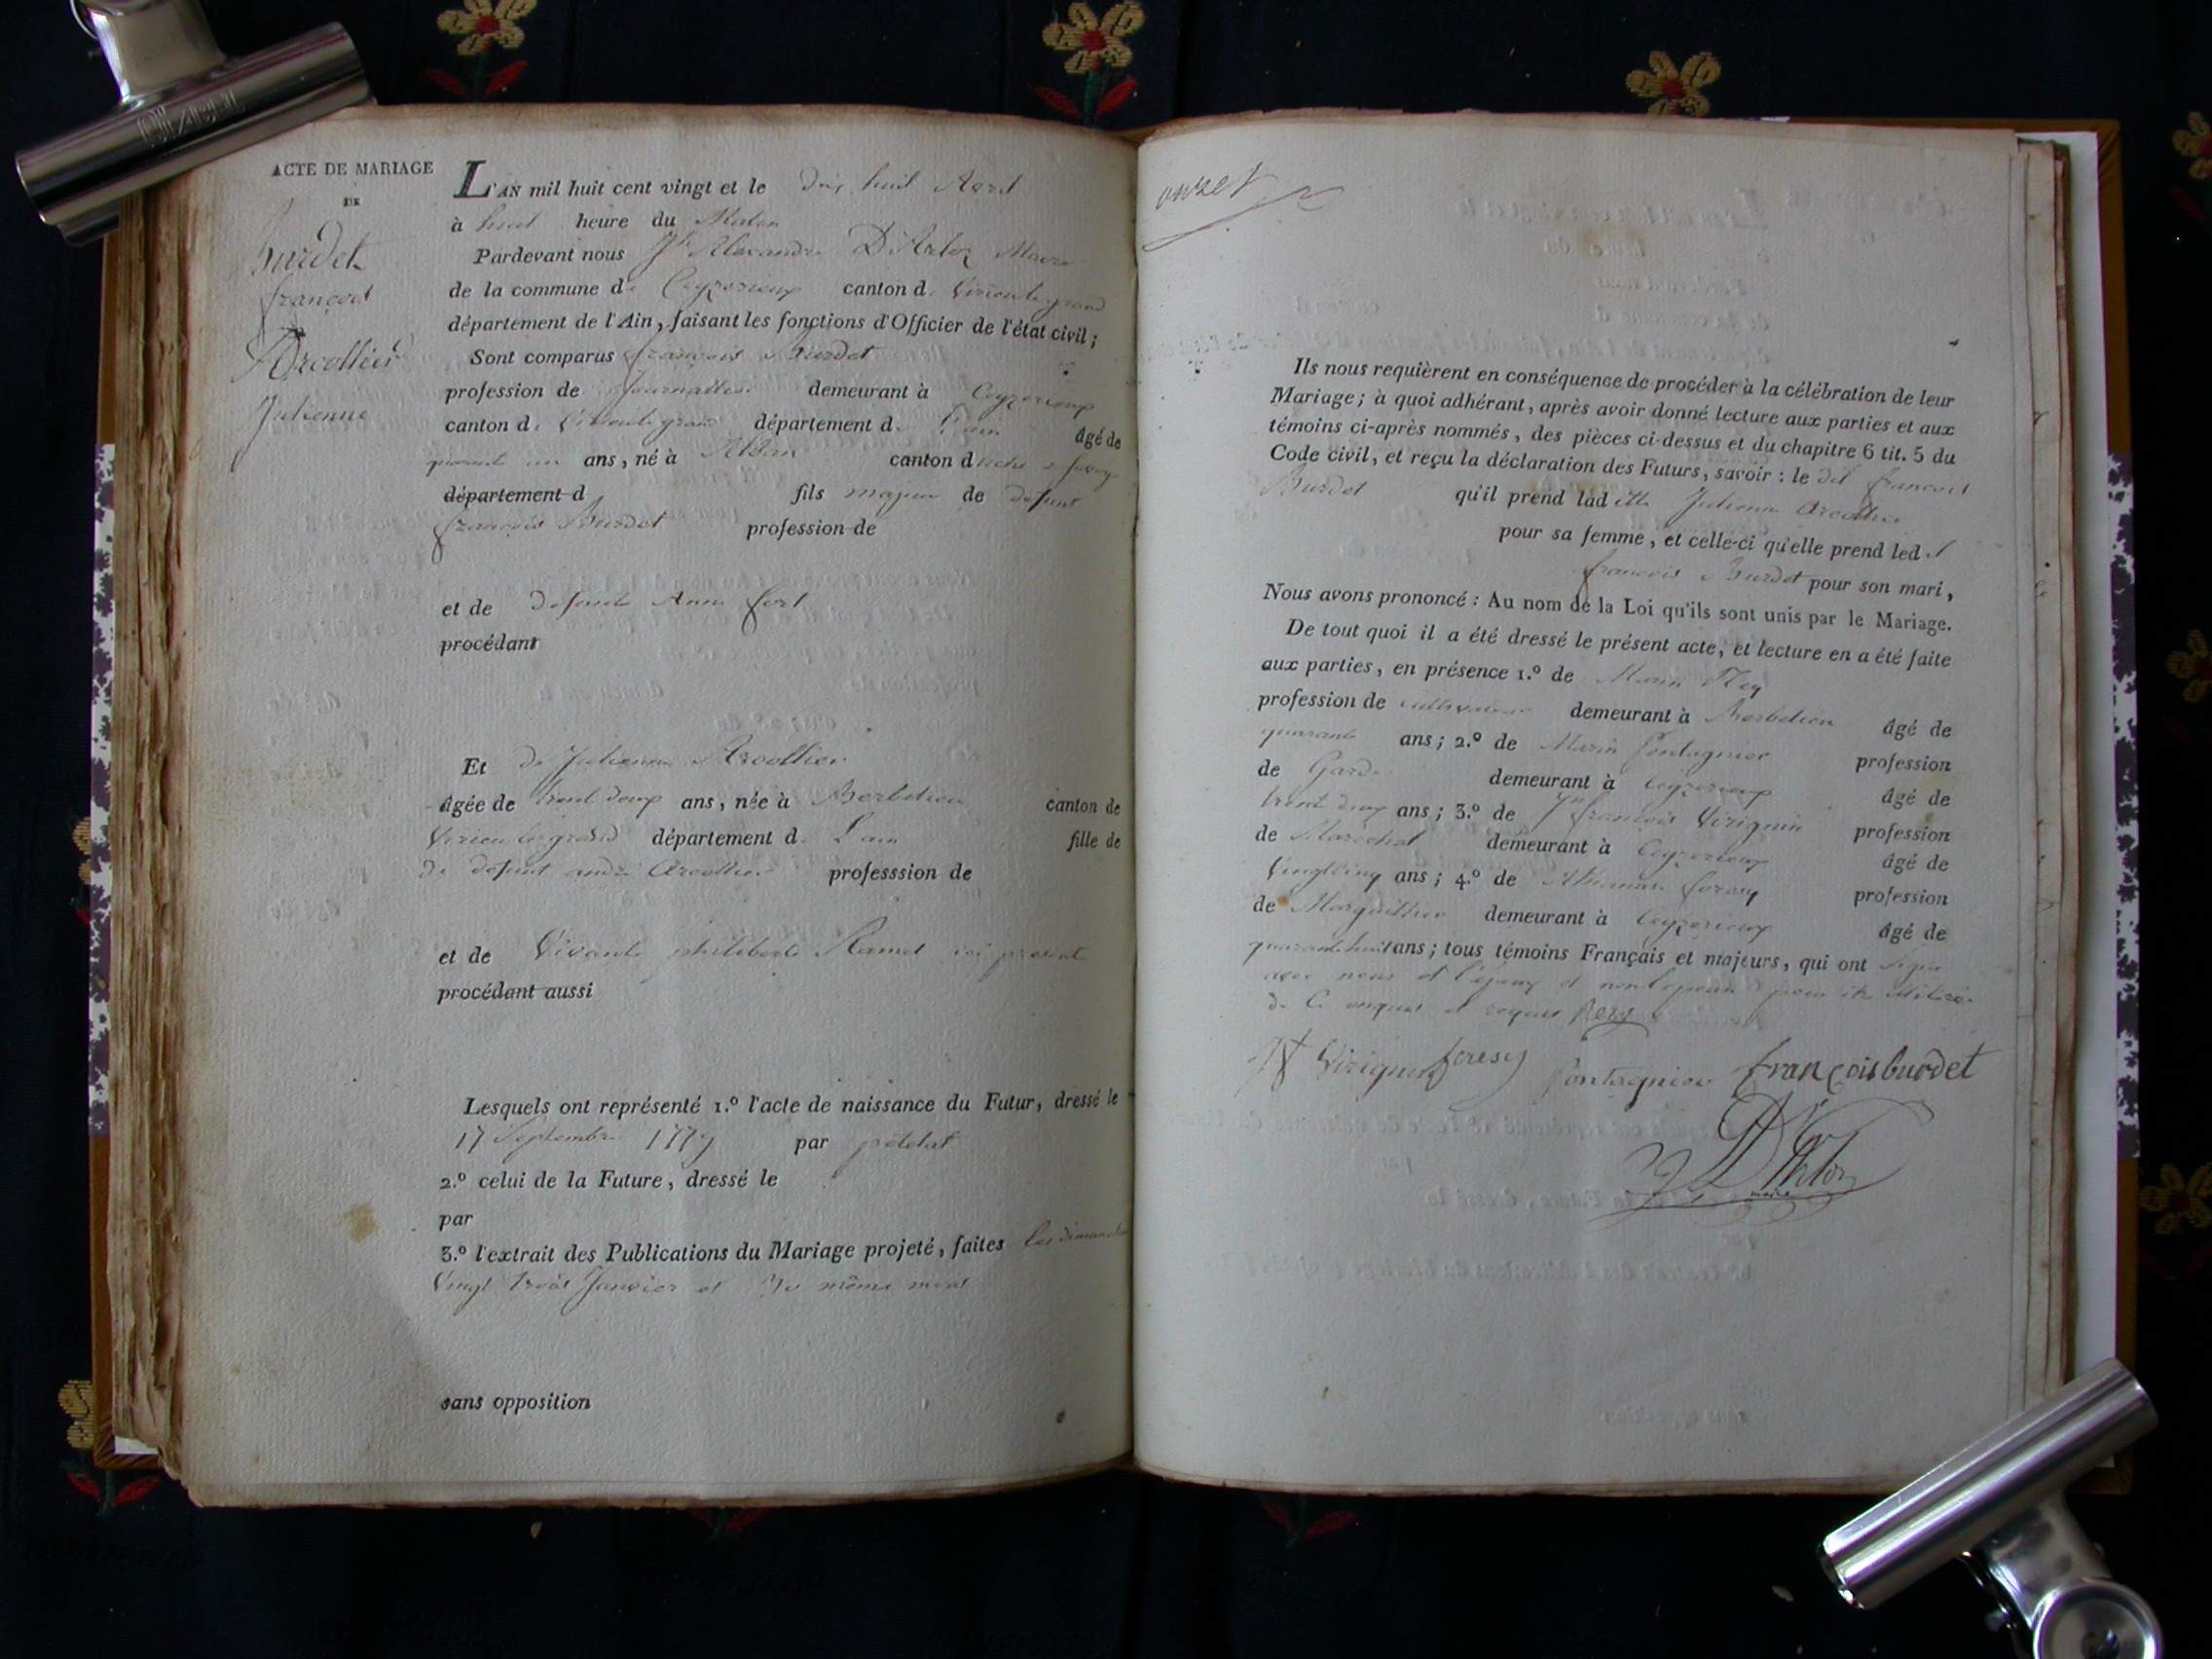 ACTE DE MARIAGE
DE
Burdet
françois
&
Arcollier
Julienne
L'AN mil huit cent vingt et le dix huit Avril
à huit heure du Matin
Pardevant nous Jh Alexandre D'Arloz Maire
de la commune de Ceyzerieux canton de Virieu le grand
département de l'Ain, faisant les fonctions d'Officier de l'état civil;
Sont comparus françois Burdet
profession de Journallier demeurant à Ceyzerieux
canton de Virieu le grand département de l'ain âgé de
quarante un ans, né à Alban canton d
département d fils majeur de defunt
françois Burdet profession de
et de defunte Anne fert
procédant
Et de Julienne Arcollier
âgée de trent deux ans, née à Berbelieu canton de
Virieu le grand département de L'ain fille de
de defunt andré Arcollier professsion de
et de Vivante philiberte Ramel ici presente
procédant aussi
Lesquels ont représenté 1.º l'acte de naissance du Futur, dressé le
17 Septembre 1779 par
2.º celui de la Future, dressé le
par
3.º l'extrait des Publications du Mariage projeté, faites les dimanche
Vingt trois Janvier et du même mois
sans opposition
onze
Ils nous requièrent en conséquence de procéder à la célébration de leur
Mariage; à quoi adhérant, après avoir donné lecture aux parties et aux
témoins ci-après nommés, des pièces ci-dessus et du chapitre 6 tit. 5 du
Code civil, et reçu la déclaration des Futurs, savoir: le dit francois
Burdet qu'il prend lad itte Julienne Arcollier
pour sa femme, et celle-ci qu'elle prend led t
francois Burdet pour son mari,
Nous avons prononcé: Au nom de la Loi qu'ils sont unis par le Mariage.
De tout quoi il a été dressé le présent acte, et lecture en a été faite
aux parties, en présence 1.º de Marin Rey
profession de cultivateur demeurant à Berbelieu âgé de
quarante ans; 2.º de Marin Pontagnier profession
de Garde demeurant à Ceyzerieux âgé de
trent deux ans; 3.º de Jn francois Virignin profession
de Marechal demeurant à Ceyzerieux âgé de
Vingt cinq ans; 4.º de Athanase foresy profession
de Marguillier demeurant à Ceyzerieux âgé de
quarante huit ans; tous témoins Français et majeurs, qui ont signé
avec nous et l'époux et non l'epouse pour être illitérée
de ce enquis et requis Rey
Virignin foresy Pontagnier françois burdet
D'Arloz
maire